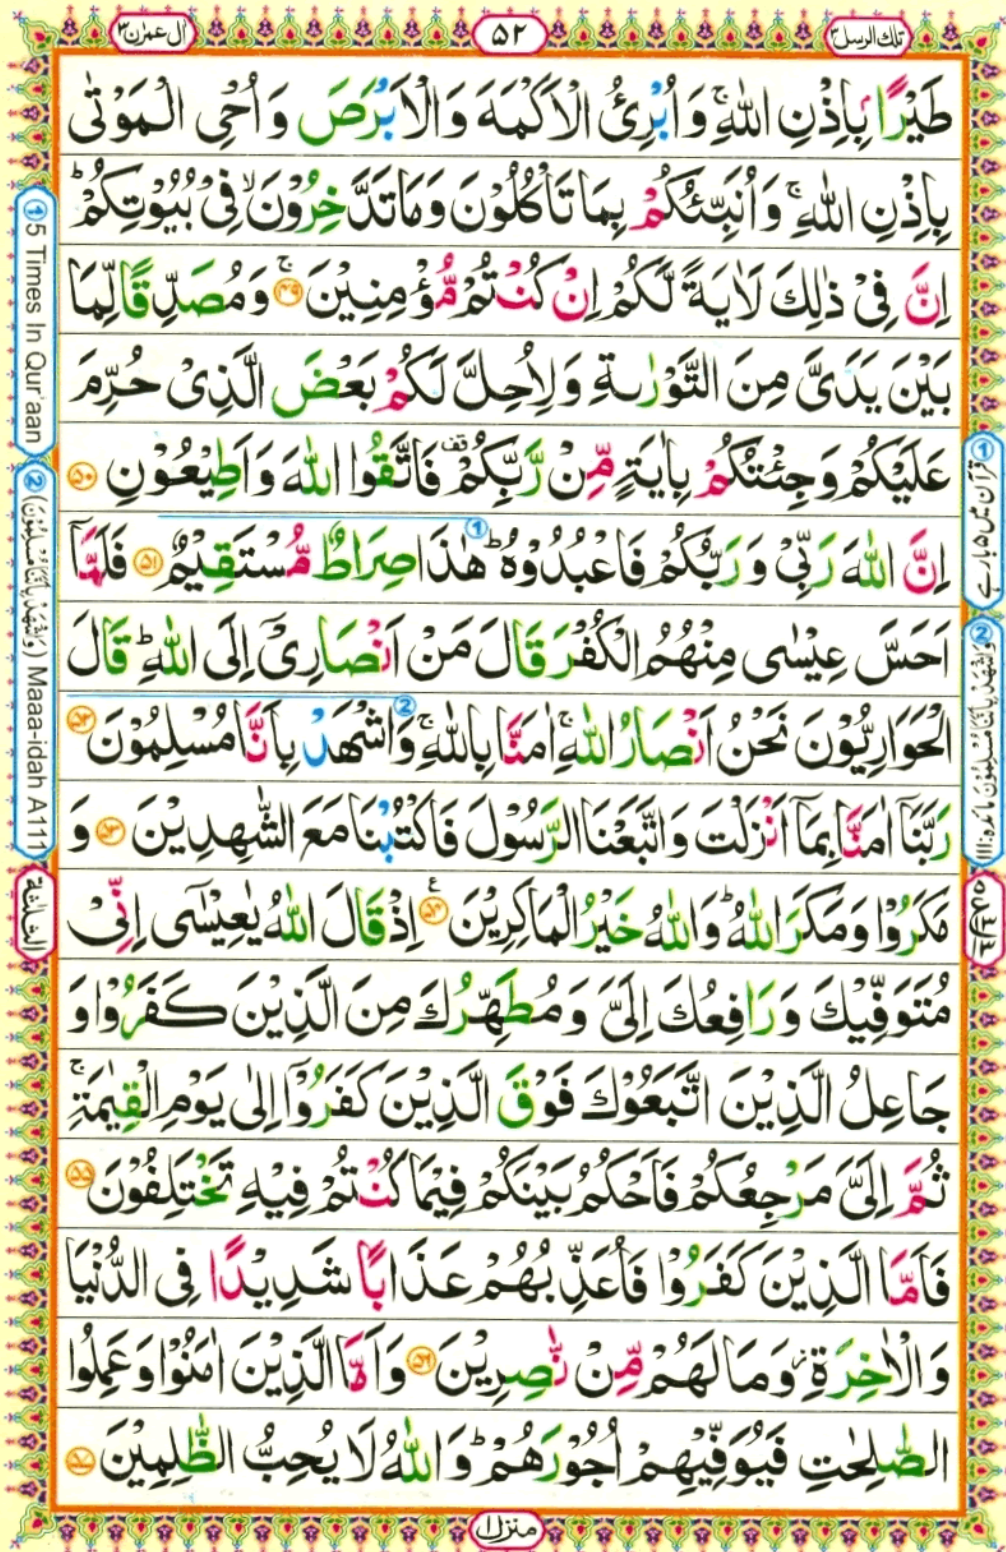 تلك الرسل ٣
٥٢
اٰل عمرٰن ٣
طَيْرًا بِاِذْنِ اللّٰهِ ۚ وَاُبْرِئُ الْاَكْمَهَ وَالْاَبْرَصَ وَاُحْىِ الْمَوْتٰى
بِاِذْنِ اللّٰهِ ۚ وَاُنَبِّئُكُمْ بِمَا تَاْكُلُوْنَ وَمَا تَدَّخِرُوْنَ ۙ فِىْ بُيُوْتِكُمْ ؕ
اِنَّ فِىْ ذٰلِكَ لَاٰيَةً لَّكُمْ اِنْ كُنْتُمْ مُّؤْمِنِيْنَ ۚ ﴿٤٩﴾ وَمُصَدِّقًا لِّمَا
بَيْنَ يَدَىَّ مِنَ التَّوْرٰٮةِ وَلِاُحِلَّ لَكُمْ بَعْضَ الَّذِىْ حُرِّمَ
عَلَيْكُمْ وَجِئْتُكُمْ بِاٰيَةٍ مِّنْ رَّبِّكُمْ قف فَاتَّقُوا اللّٰهَ وَاَطِيْعُوْنِ ﴿٥٠﴾
اِنَّ اللّٰهَ رَبِّىْ وَرَبُّكُمْ فَاعْبُدُوْهُ ؕ ① هٰذَا صِرَاطٌ مُّسْتَقِيْمٌ ﴿٥١﴾ فَلَمَّاۤ
اَحَسَّ عِيْسٰى مِنْهُمُ الْكُفْرَ قَالَ مَنْ اَنْصَارِىْۤ اِلَى اللّٰهِ ؕ قَالَ
الْحَوَارِيُّوْنَ نَحْنُ اَنْصَارُ اللّٰهِ ۚ اٰمَنَّا بِاللّٰهِ ۚ ② وَاشْهَدْ بِاَنَّا مُسْلِمُوْنَ ﴿٥٢﴾
رَبَّنَاۤ اٰمَنَّا بِمَاۤ اَنْزَلْتَ وَاتَّبَعْنَا الرَّسُوْلَ فَاكْتُبْنَا مَعَ الشّٰهِدِيْنَ ﴿٥٣﴾ وَ
مَكَرُوْا وَمَكَرَ اللّٰهُ ؕ وَاللّٰهُ خَيْرُ الْمَاكِرِيْنَ ﴿٥٤﴾ ع اِذْ قَالَ اللّٰهُ يٰعِيْسٰٓى اِنِّىْ
مُتَوَفِّيْكَ وَرَافِعُكَ اِلَىَّ وَمُطَهِّرُكَ مِنَ الَّذِيْنَ كَفَرُوْا وَ
جَاعِلُ الَّذِيْنَ اتَّبَعُوْكَ فَوْقَ الَّذِيْنَ كَفَرُوْۤا اِلٰى يَوْمِ الْقِيٰمَةِ ۚ
ثُمَّ اِلَىَّ مَرْجِعُكُمْ فَاَحْكُمُ بَيْنَكُمْ فِيْمَا كُنْتُمْ فِيْهِ تَخْتَلِفُوْنَ ﴿٥٥﴾
فَاَمَّا الَّذِيْنَ كَفَرُوْا فَاُعَذِّبُهُمْ عَذَابًا شَدِيْدًا فِى الدُّنْيَا
وَالْاٰخِرَةِ ز وَمَا لَهُمْ مِّنْ نّٰصِرِيْنَ ﴿٥٦﴾ وَاَمَّا الَّذِيْنَ اٰمَنُوْا وَعَمِلُوا
الصّٰلِحٰتِ فَيُوَفِّيْهِمْ اُجُوْرَهُمْ ؕ وَاللّٰهُ لَا يُحِبُّ الظّٰلِمِيْنَ ﴿٥٧﴾
① قرآن میں ۵ بار ہے
② وَاشْهَدْ بِاَنَّنَا مُسْلِمُوْنَ مائدہ: ۱۱۱
① 5 Times In Qur'aan
② (وَاشْهَدْ بِاَنَّنَا مُسْلِمُوْنَ) Maaa-idah A111
الثلٰثة
منزل ١